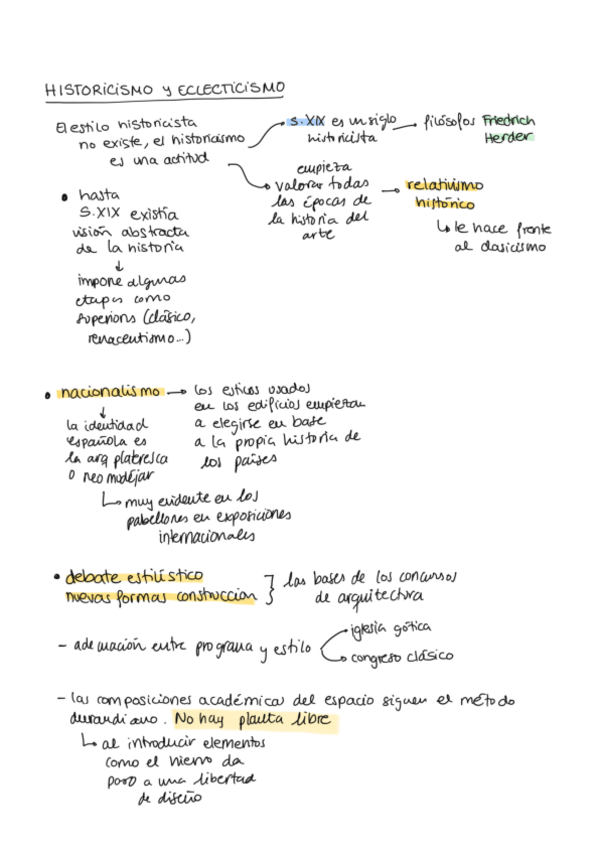 HISTORICISMO y ECLECTICISMO
El estilo historicista
no existe, el historicismo
es una actitud
s. XIX es un siglo
historicista
filósofos Friedrich
Herder
empieza
valorar todas
las épocas de
la historia del
arte
relativismo
histórico
le hace frente
al clasicismo
• hasta
S.XIX existía
visión abstracta
de la historia
↓
impone algunas
etapas como
superiores (clásico,
renacentismo...)
• nacionalismo → los estilos usados
en los edificios empiezan
a elegirse en base
a la propia historia de
los países
↓
la identidad
española es
la arq plateresca
o neo mudéjar
↳ muy evidente en los
pabellones en exposiciones
internacionales
• debate estilístico
nuevas formas construccion
las bases de los concursos
de arquitectura
- adecuación entre programa y estilo
iglesia gótica
congreso clásico
- las composiciones académicas del espacio siguen el método
durandiano. No hay planta libre
↳ al introducir elementos
como el hierro da
paso a una libertad
de diseño